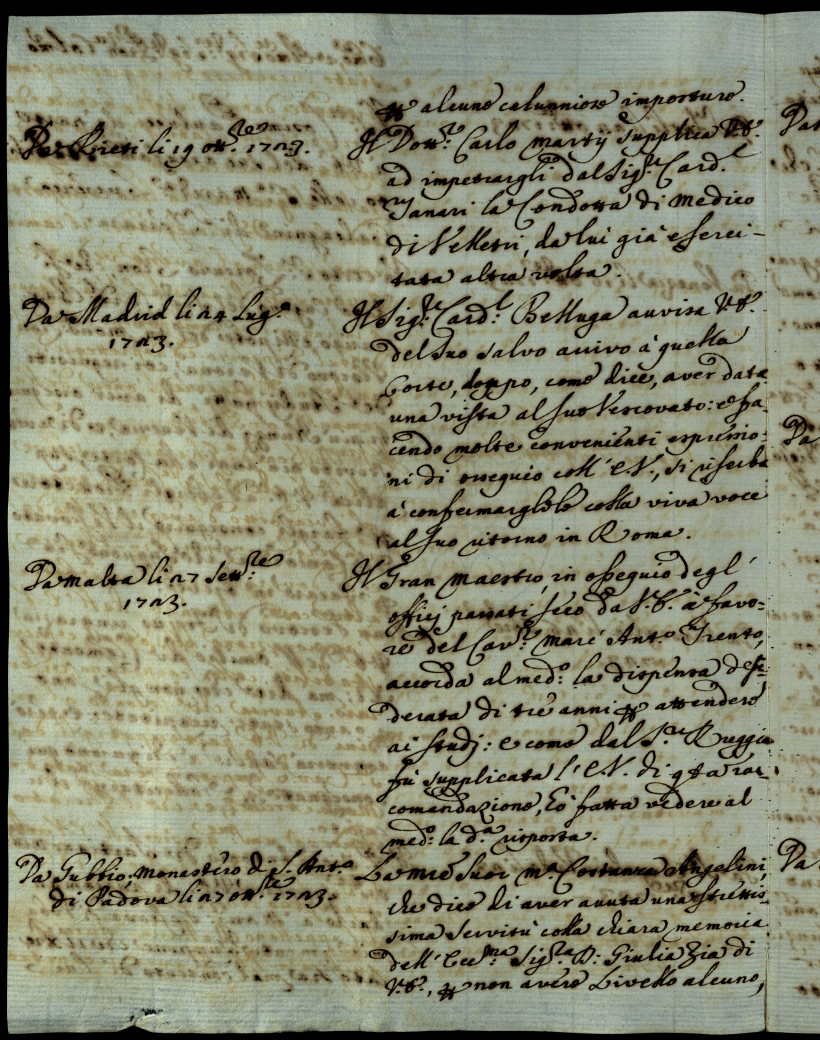 p alcune calunniose imposture.
Da Rieti li 19 ott.re 1723.
Il Dott.re Carlo Martij supplica V.E.
ad impetrargli dal Sig.r Card.l
Janari la Condotta di Medico
di Velletri, da lui già eserci-
tata altra volta.
Da Madrid li 24 Lug.o
1723.
Il Sig.r Card.l Belluga avvisa V.E.
del suo salvo arrivo à quella
Corte, doppo, come dice, aver data
una vista al suo Vescovato: e fa-
cendo molte convenienti espressio-
ni di ossequio coll' E.V., si riserba
à confermarglele colla viva voce
al suo ritorno in Roma.
Da Malta li 27 Sett.re
1723.
Il Gran Maestro, in ossequio degl'
officj passati seco da V.E. à favo-
re del Cav.re Marc' Ant.o Trento,
accorda al med.o la dispensa desi-
derata di trè anni p attendere
ai studj: e come dal S.r Reggio
fù supplicata l'E.V. di q.ta rac-
comandazione, hò fatta vedere al
med.o la d.a risposta.
Da Gubbio, Monastero di S. Ant.o
di Padova li 27 ott.re 1723.
La M.re Suor M.a Costanza Angelini,
che dice di aver avuta una strettis-
sima servitù colla chiara memoria
dell' Ecc.ma Sig.ra D. Giulia Zia di
V.E., p non avere Livello alcuno,